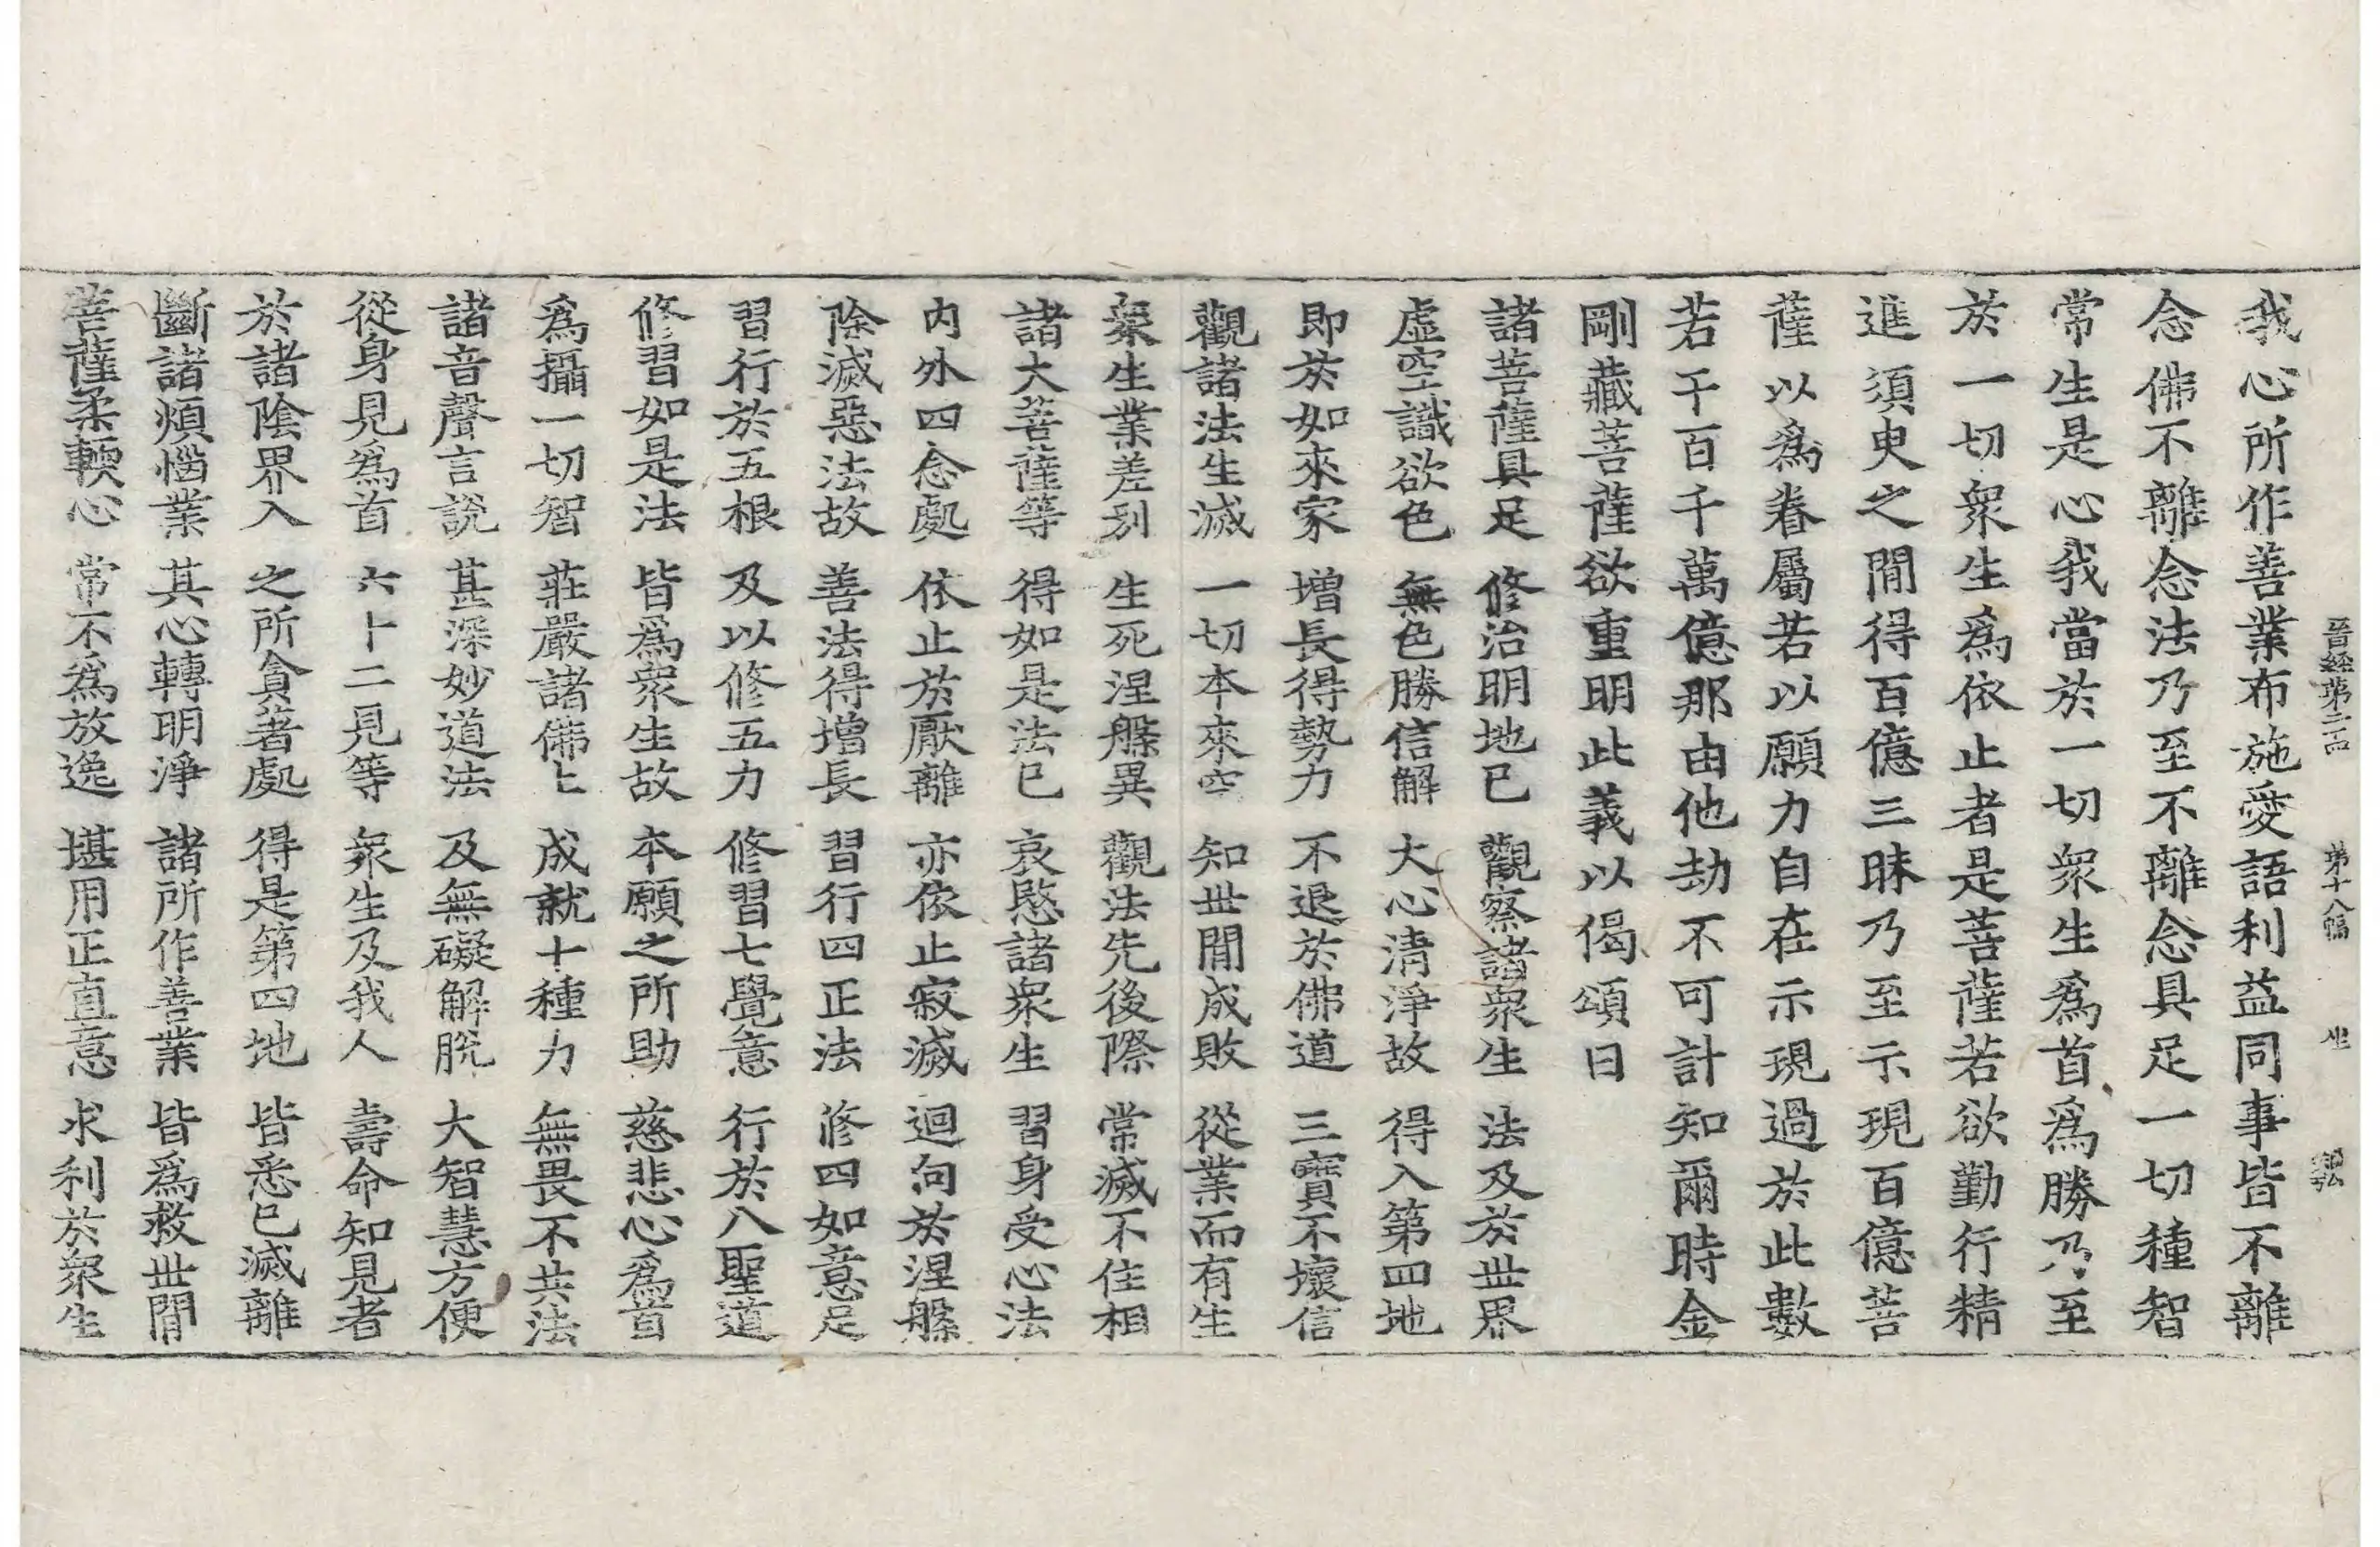 晉経第二四 第十八幅 坐
我心所作善業布施愛語利益同事皆不離
念佛不離念法乃至不離念具足一切種智
常生是心我當於一切衆生爲首爲勝乃至
於一切衆生爲依止者是菩薩若欲勤行精
進須臾之閒得百億三昧乃至示現百億菩
薩以爲眷屬若以願力自在示現過於此數
若干百千萬億那由他劫不可計知爾時金
剛藏菩薩欲重明此義以偈頌曰
諸菩薩具足 修治明地已 觀察諸衆生 法及於世界
虛空識欲色 無色勝信解 大心清淨故 得入第四地
即於如來家 增長得勢力 不退於佛道 三寶不壞信
觀諸法生滅 一切本來空 知世閒成敗 從業而有生
衆生業差别 生死涅槃異 觀法先後際 常滅不住相
諸大菩薩等 得如是法已 哀愍諸衆生 習身受心法
内外四念處 依止於厭離 亦依止寂滅 迴向於涅槃
除滅惡法故 善法得增長 習行四正法 修四如意足
習行於五根 及以修五力 修習七覺意 行於八聖道
修習如是法 皆爲衆生故 本願之所助 慈悲心爲首
爲攝一切智 莊嚴諸佛上 成就十種力 無畏不共法
諸音聲言説 甚深妙道法 及無礙解脫 大智慧方便
從身見爲首 六十二見等 衆生及我人 壽命知見者
於諸陰界入 之所貪著處 得是第四地 皆悉已滅離
斷諸煩惱業 其心轉明淨 諸所作善業 皆爲救世閒
菩薩柔輭心 常不爲放逸 堪用正直意 求利於衆生